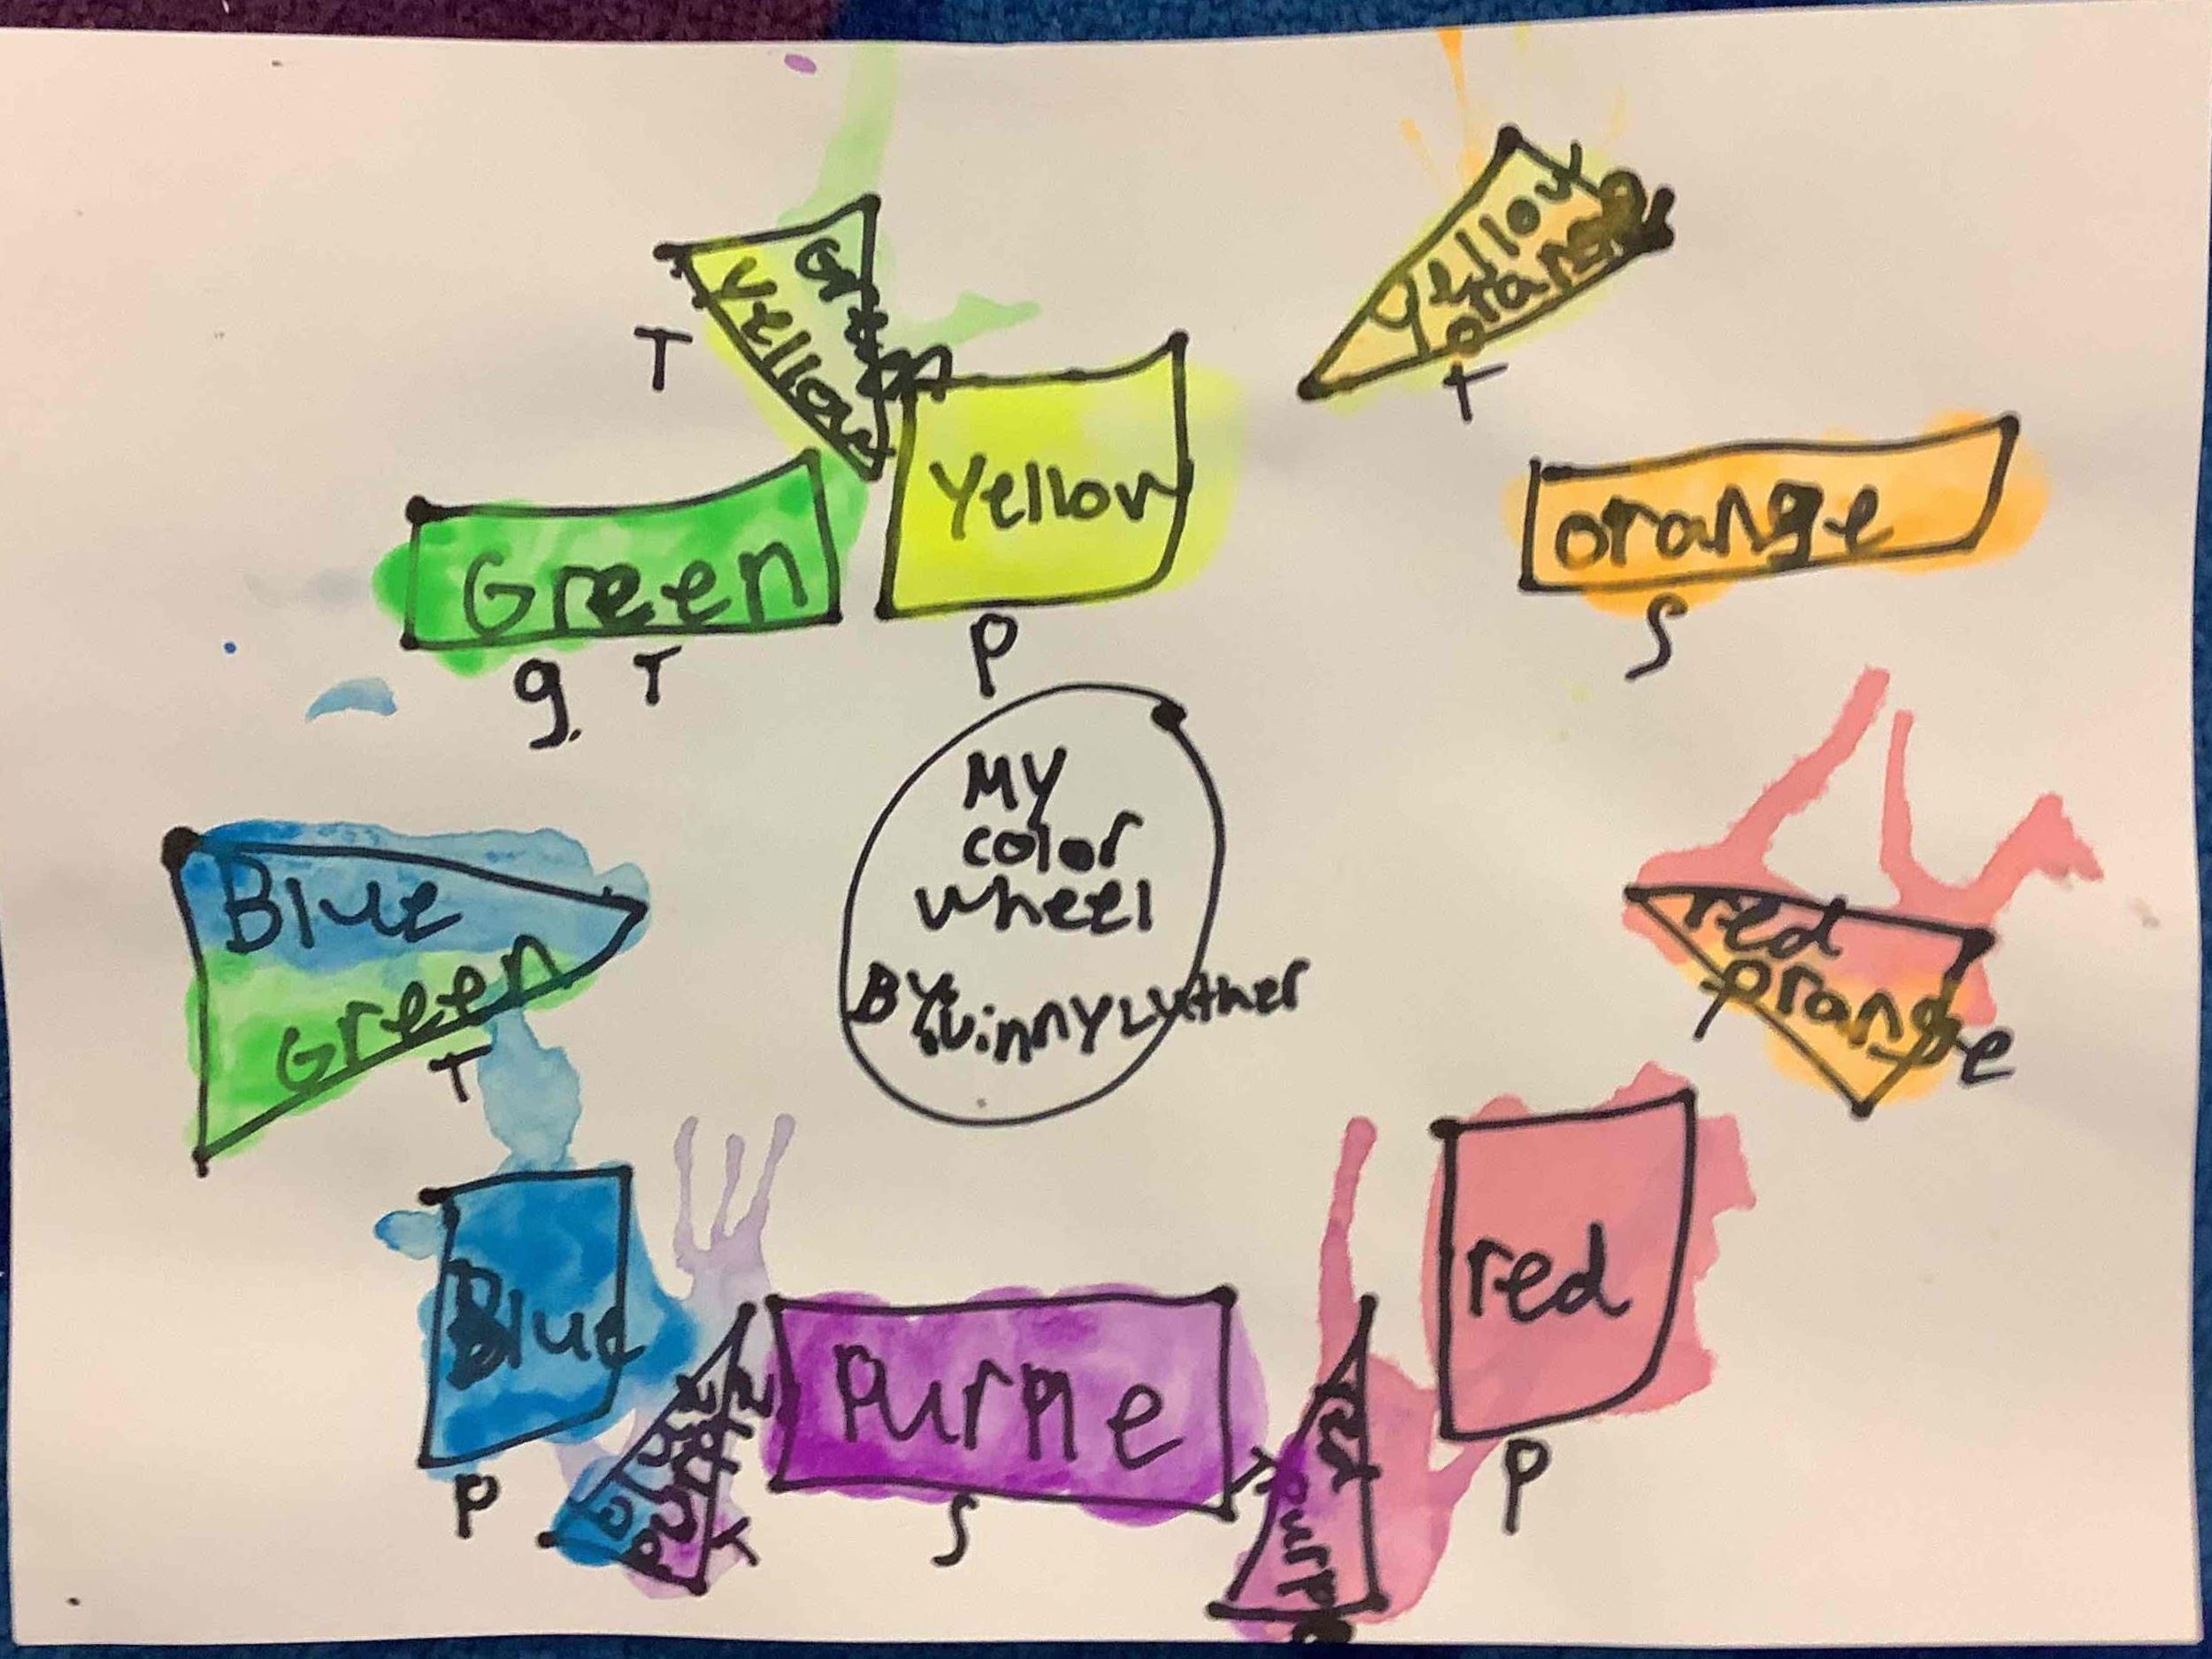 Green
Yellow
T
Yellow
P
Yellow
orange
T
orange
S
Green
g. T
My
color
wheel
red
orange
Blue
Green
T
Blue
P
red
P
Purple
S
T
red
purple
T